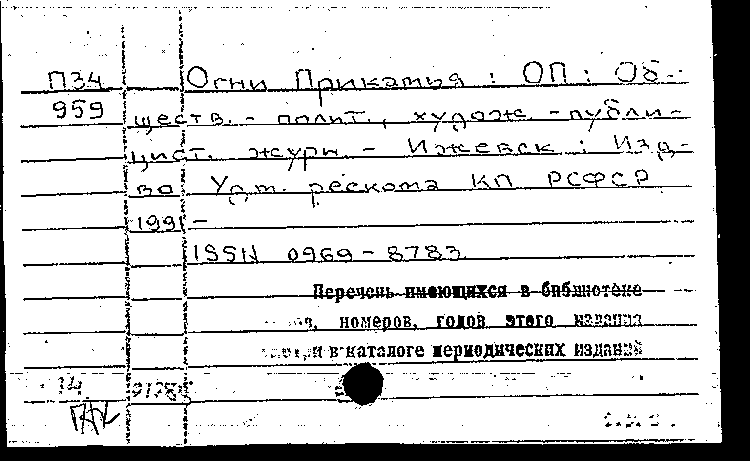 П34 Огни Прикамья : ОП : Об-
959 ществ. - полит., худож. - публи-
цист. журн. - Ижевск : Изд-
во Удм. рескома КП РСФСР
1991 -
ISSN 0969 - 8783
Перечень имеющихся в библиотеке
номеров, годов этого издания
в каталоге периодических изданий
34